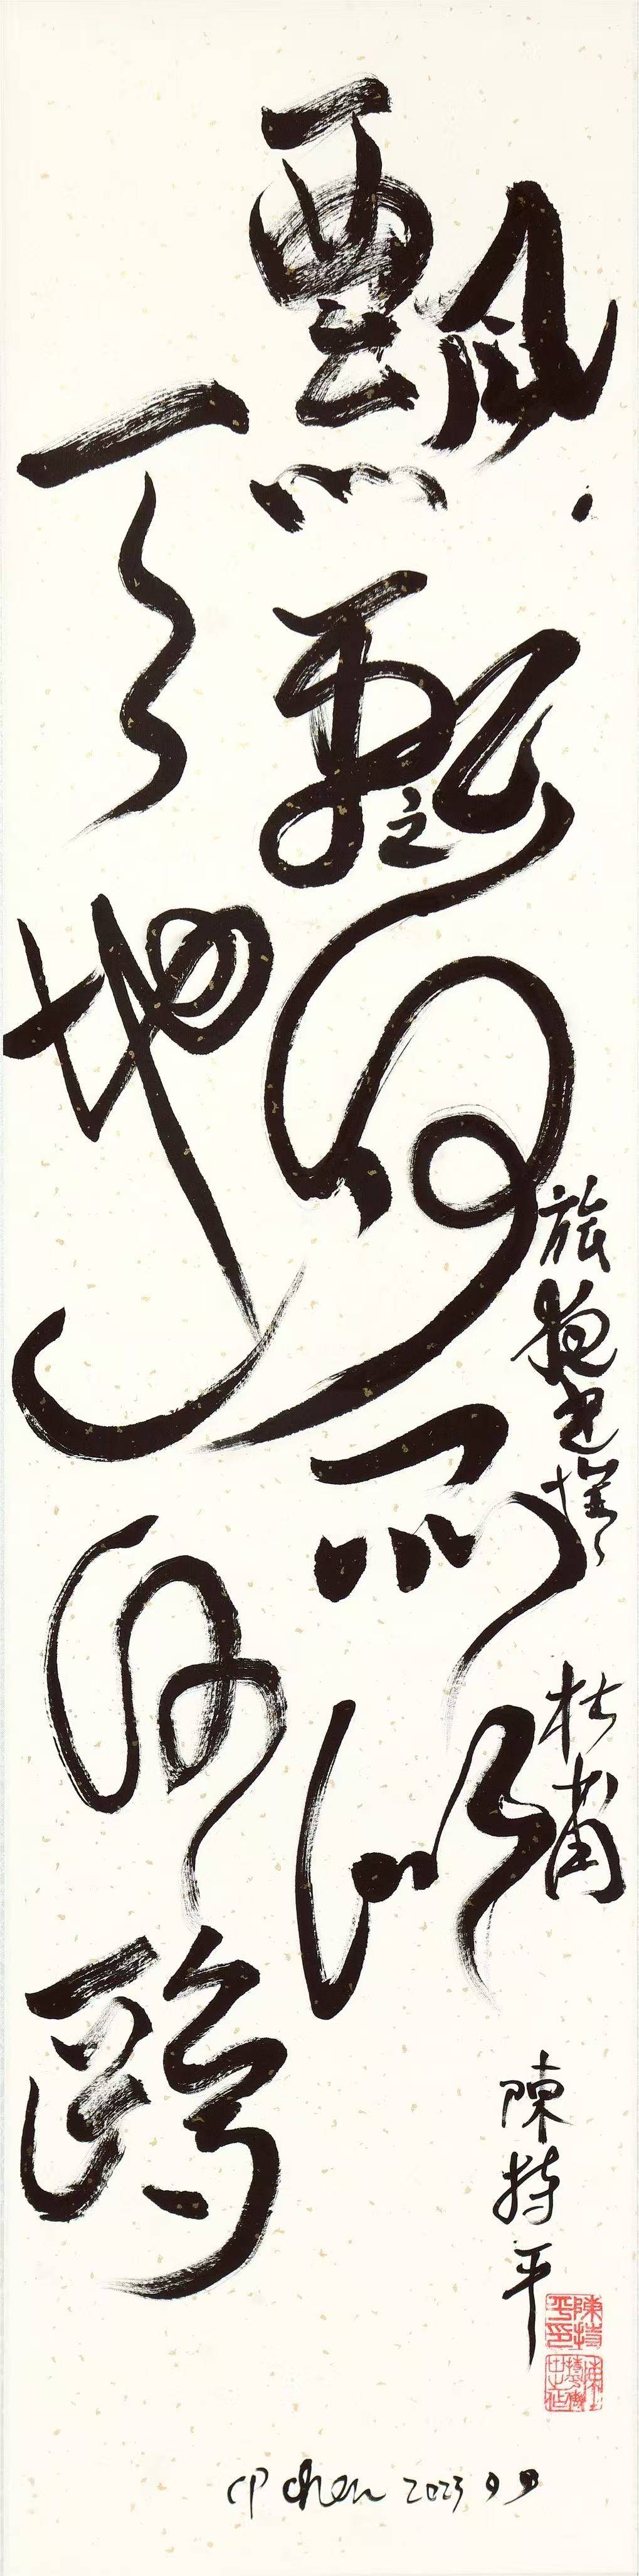 飄飄何所似
天地一沙鷗
旅夜書懷 杜甫
陳持平
陳持平印
CP Chen 2023 9 9